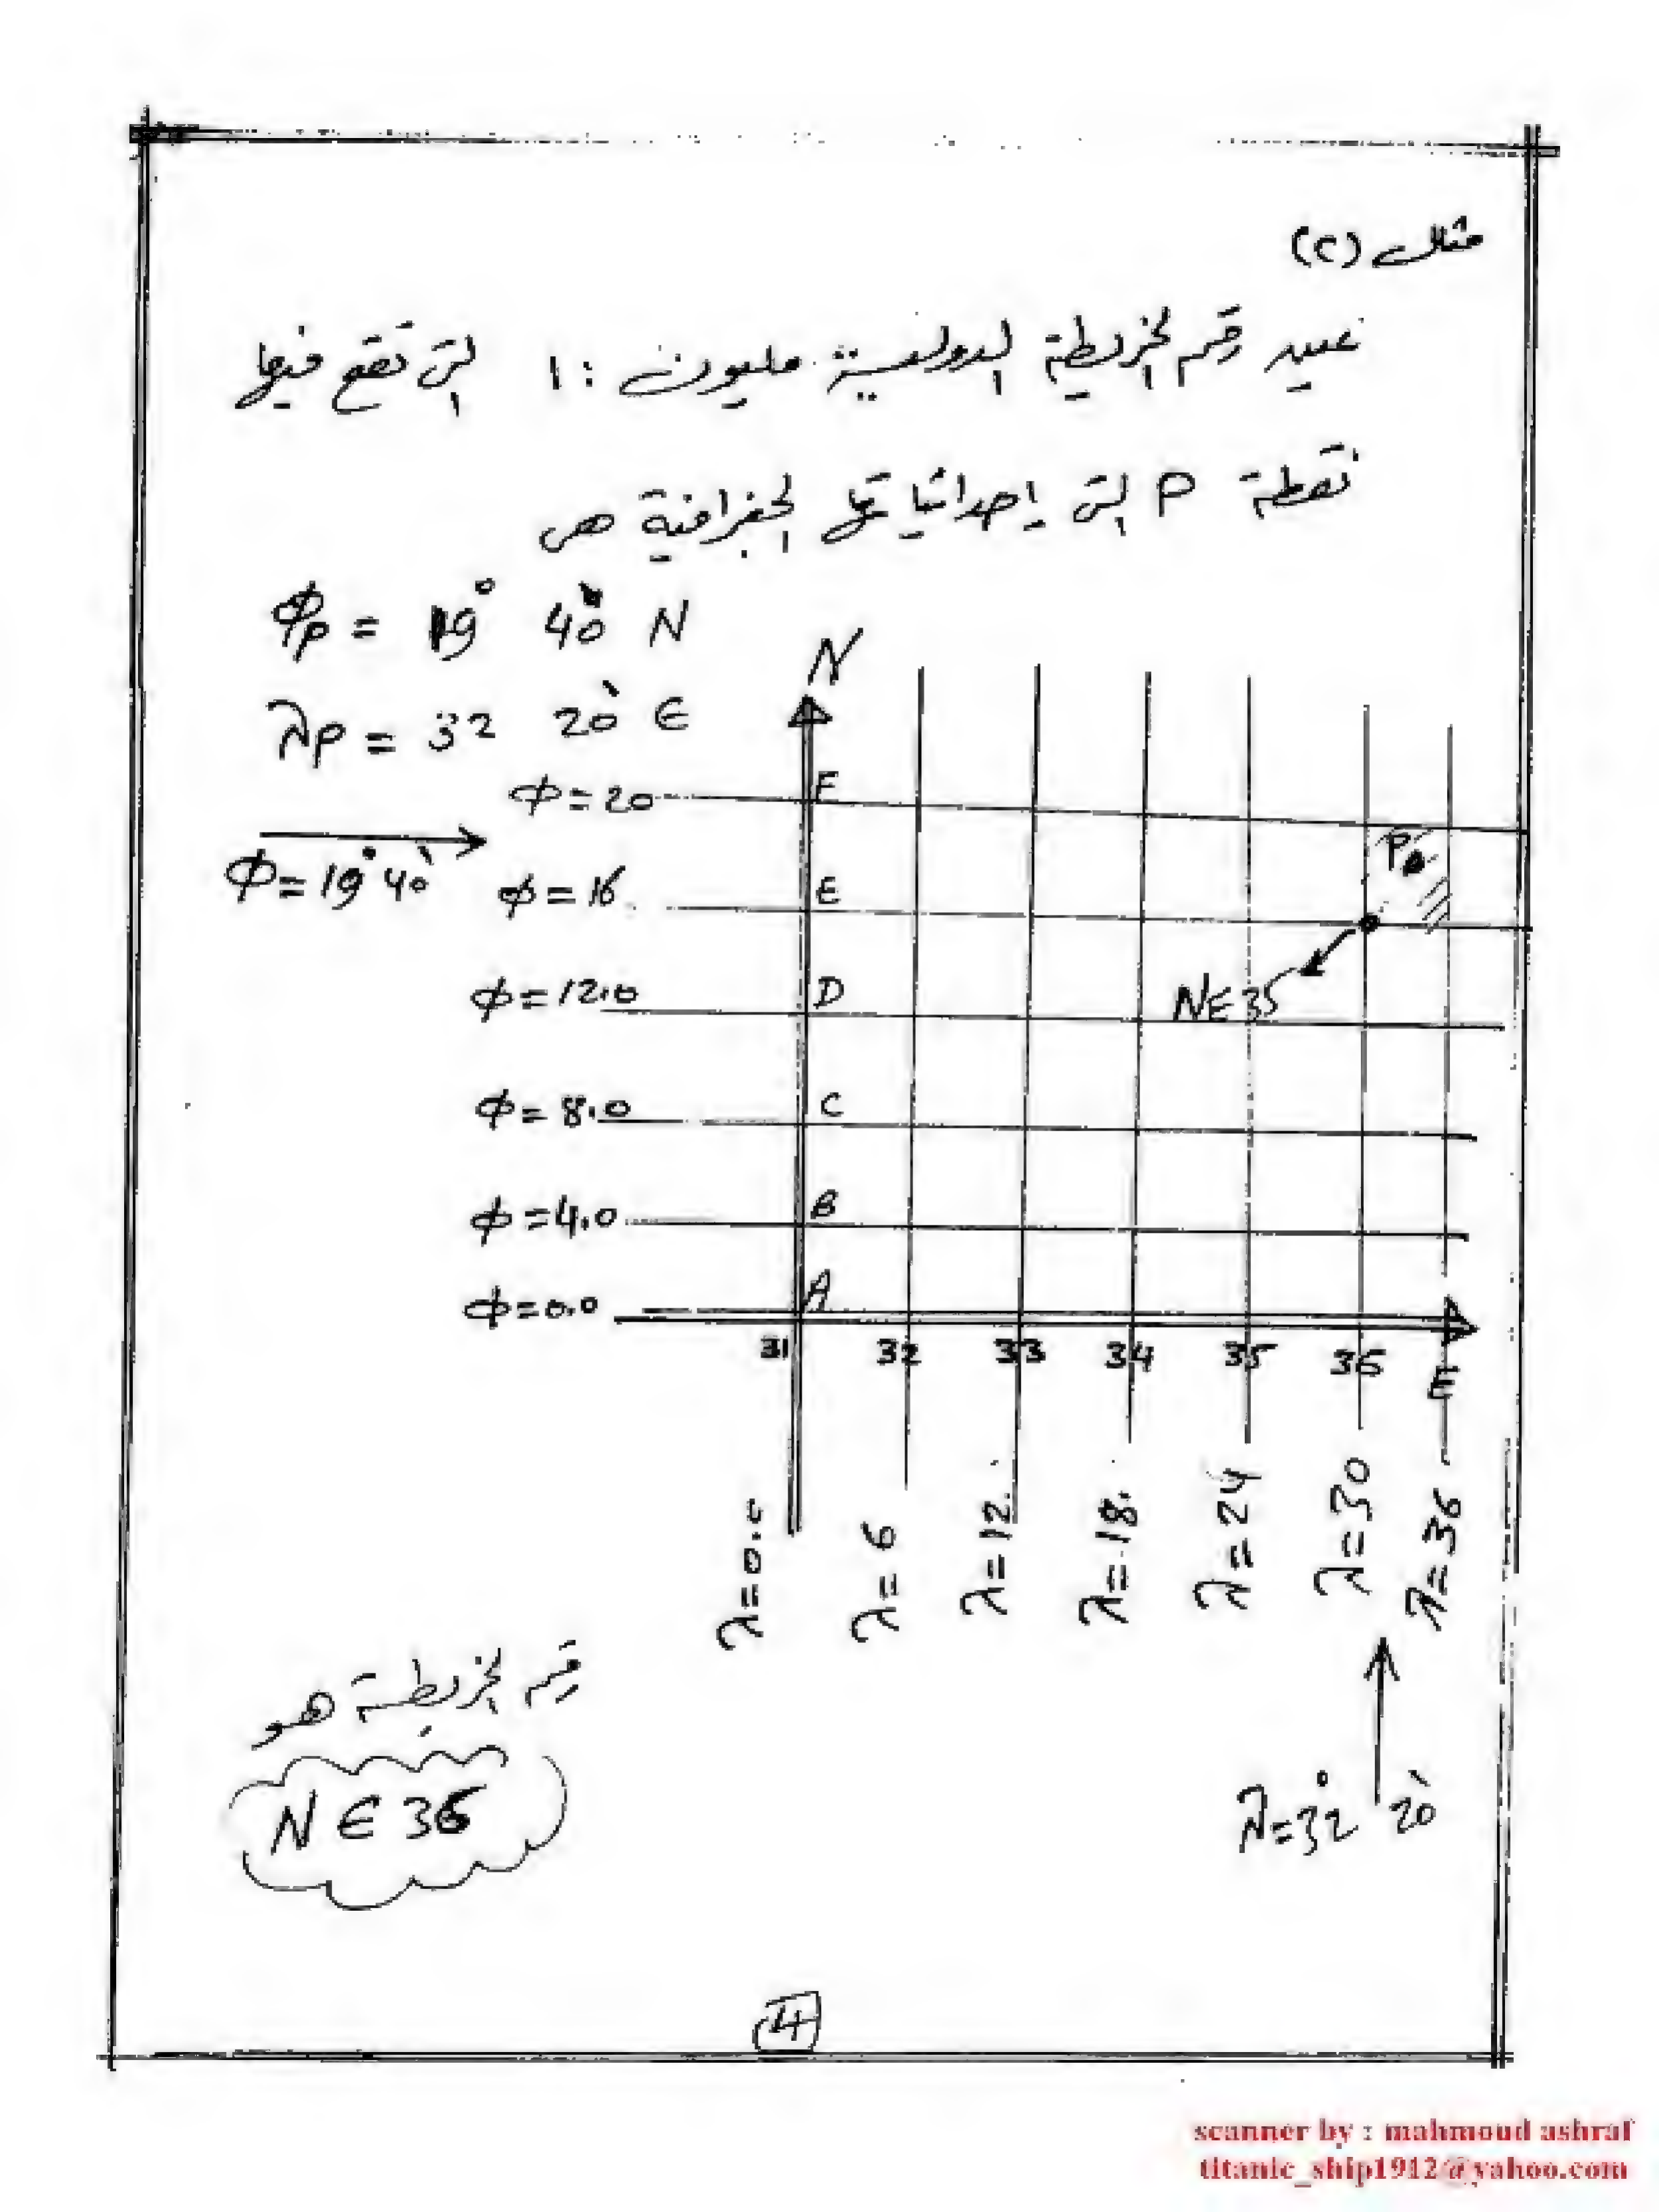 مثال (٢)
عين رقم الخريطة الدولية مليون : ١ التى تقع فيها
نقطة P التى إحداثياتها الجغرافية هى
Φp = 19° 40' N
λp = 32 20' E
N
Φ = 20
F
P
Φ = 19° 40'
Φ = 16
E
NE 35
Φ = 12.0
D
Φ = 8.0
C
Φ = 4.0
B
Φ = 0.0
A
31 32 33 34 35 36
E
λ = 0.0
λ = 6
λ = 12.
λ = 18.
λ = 24
λ = 30
λ = 36
رقم الخريطة هو
NE 36
λ = 32° 20'
4
scanner by : mahmoud ashraf
titanic_ship1912@yahoo.com